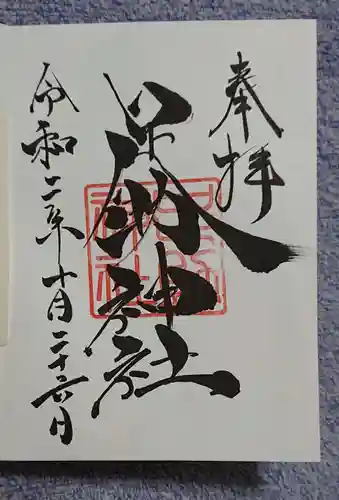 奉拝
足助神社
令和二年十月二十六日